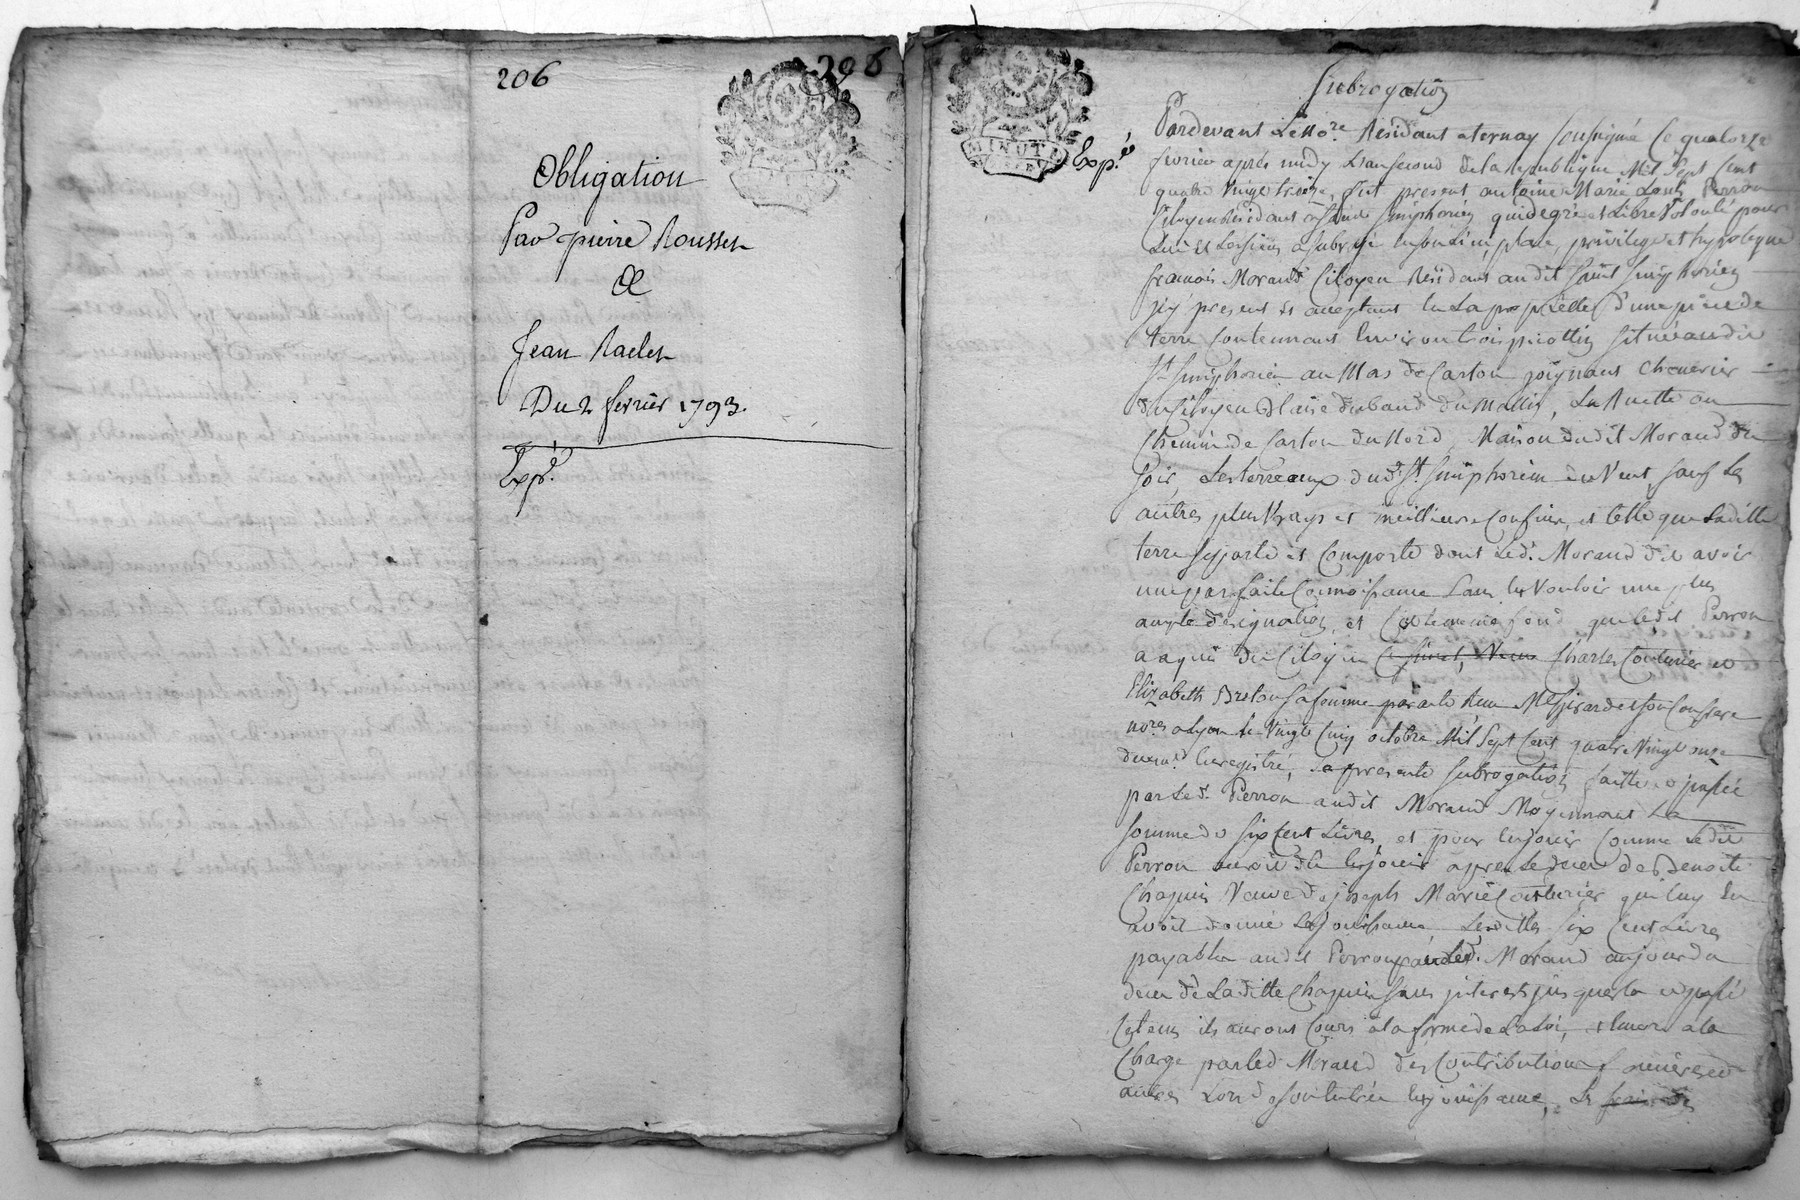 206
206
Obligation
Par pierre Rousset
A
Jean Raclet
Du 2 fevrier 1793.
Expé.
MINUTE
Expé.
Subrogation
Pardevant Le Nore. Residant a ternay soussigné Ce quatorze
fevrier après midy L'an second de la republique Mil Sept Cent
quatre vingt treize, fut present antoine Marie Louis Perron
Citoyen Residant a Saint Simphorien qui de gré et Libre Volonté pour
Lui et Les siens a subrogé en son Lieu, place, privilege et hypoteque
francois Morand Citoyen Residant audit Saint Simphorien
icy present et acceptant en La propriette d'une piece de
terre Contennant Environ trois picottin située audit
St. Simphorien au Mas de Carton joignant Chenevier
du Citoyen Blaise du Matin, La Ruette ou
Chemin de Carton du Nord, Maison dudit Morand du
Soir, Les terreaux dud. St. Simphorien du Vent, sauf Les
autres plus Vrays et meilleurs Confins, et telle que Ladite
terre se porte et Comporte dont Led. Morand dit avoir
une parfaite Connoissance sans en Vouloir une plus
ample designation, et C'est le meme fond que ledit Perron
a aquis du Citoyen Charles Couturier et
Elizabeth sa femme par acte Reçu Me. Girard et son Confrere
nores. a Lyon Le Vingt Cinq octobre Mil Sept Cent quatre Vingt onze
duement Enregistré, La presente subrogation faitte et passée
par Led. Perron audit Morand Moyennant La
somme de six Cent Livres, et pour en jouir Comme Ledit
Perron auroit dû en jouir apres Le deces de Benoite
Chapuis Veuve de joseph Marie Couturier qui luy En
avoit donné La jouissance, Lesdittes six Cent Livres
payables audit Perron par Led. Morand au jour du
deces de La ditte Chapuis sans interets jusques la et passé
Cetems ils auront Cours a la forme de La Loi, et Encore a la
Charge par led. Morand des Contributions foncieres et
autres Lors de son Entrée en jouissance, Et